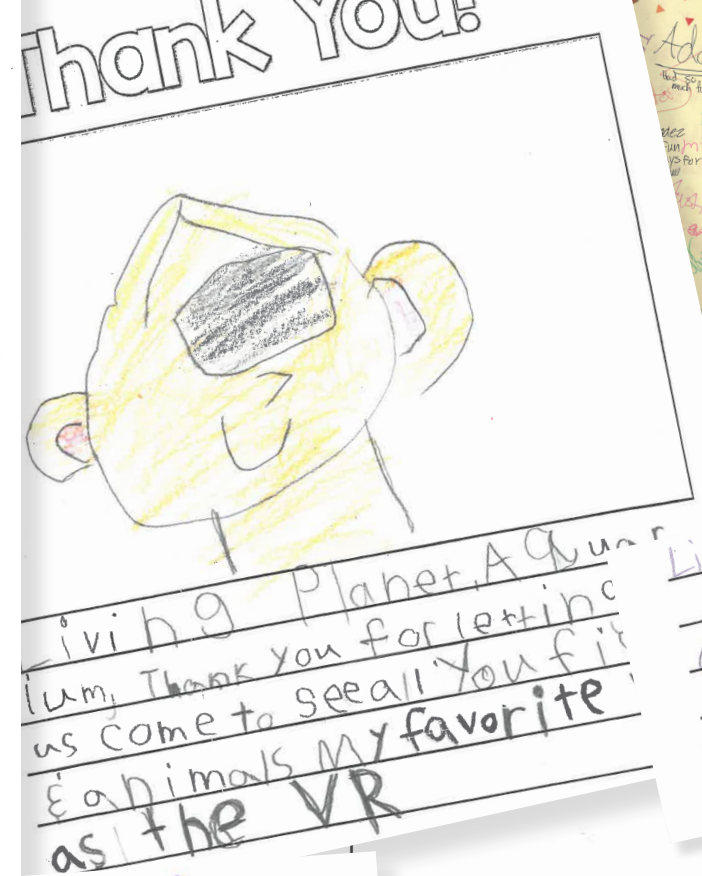 Thank You!
Living Planet, Aquar
ium, Thank you for letting
us come to see all You fi
& animals My favorite
as the VR